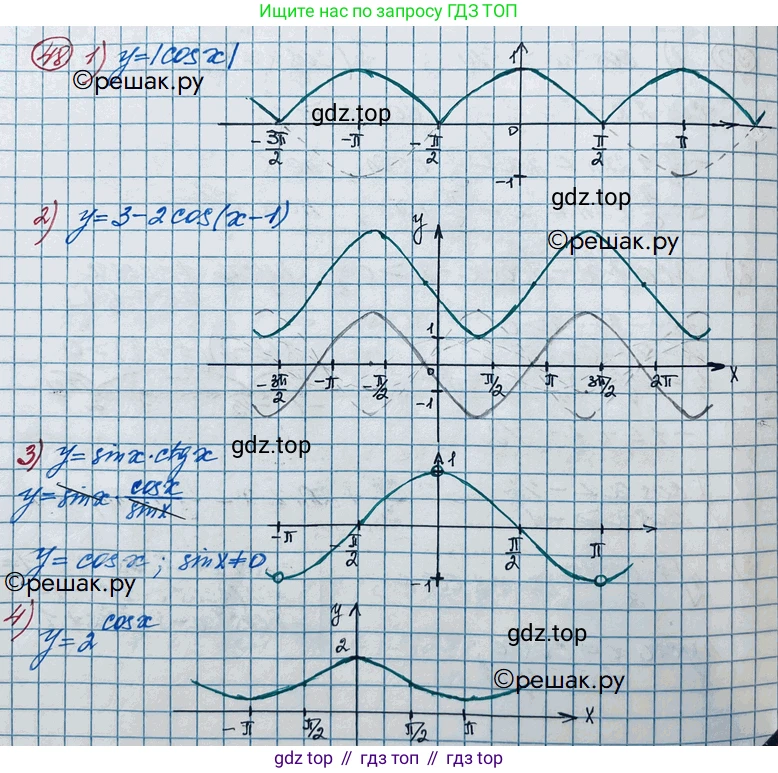 Ищите нас по запросу ГДЗ ТОП
48 1) y=|cos x|
©решак.ру
gdz.top
1
0
-3π/2 -π -π/2 π/2 π
-1
gdz.top
2) y=3-2cos(x-1)
y
©решак.ру
1
0
-3π/2 -π -π/2 π/2 π 3π/2 2π x
-1
3) y=sinx·ctgx
gdz.top
1
y=sinx·cosx/sinx
-π -π/2 π/2 π
y=cosx; sinx≠0
-1
©решак.ру
4) y=2^cosx
y
2
gdz.top
©решак.ру
-π π/2 π/2 π x
gdz top // гдз топ // gdz top